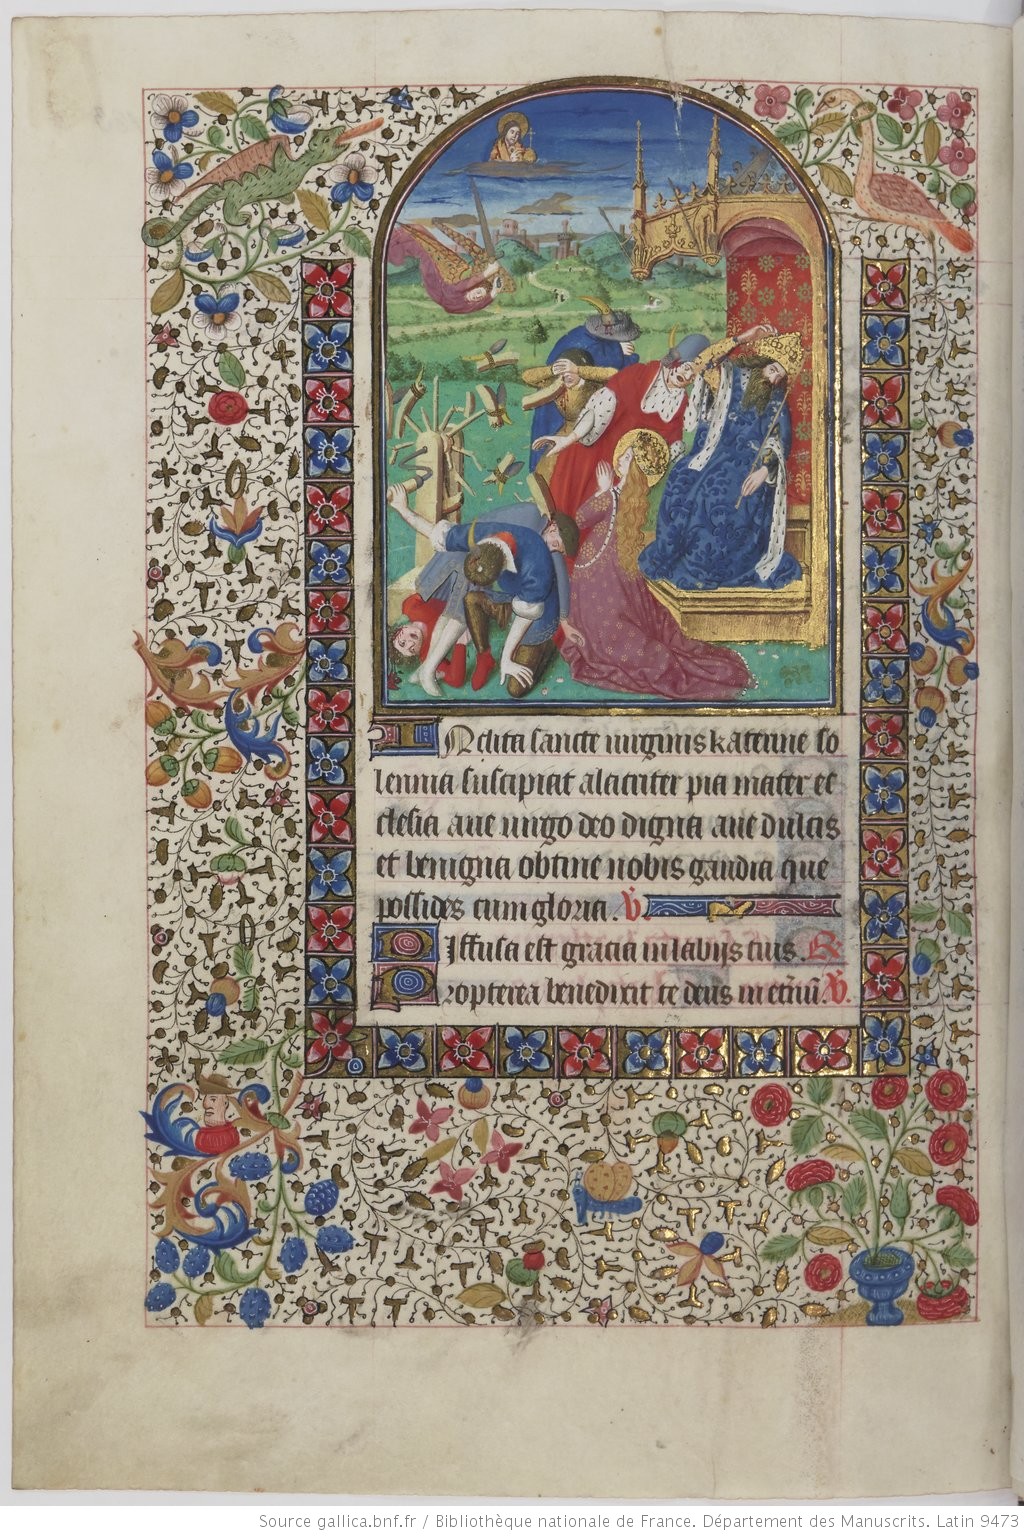 Inclita sancte virginis katerine so
lennia suscipiat alacriter pia mater ec
clesia aue uirgo deo digna aue dulcis
et benigna obtine nobis gaudia que
possides cum gloria. V.
Diffusa est gracia in labijs tuis. R
Propterea benedixit te deus in eternū. V.
Source gallica.bnf.fr / Bibliothèque nationale de France. Département des Manuscrits. Latin 9473